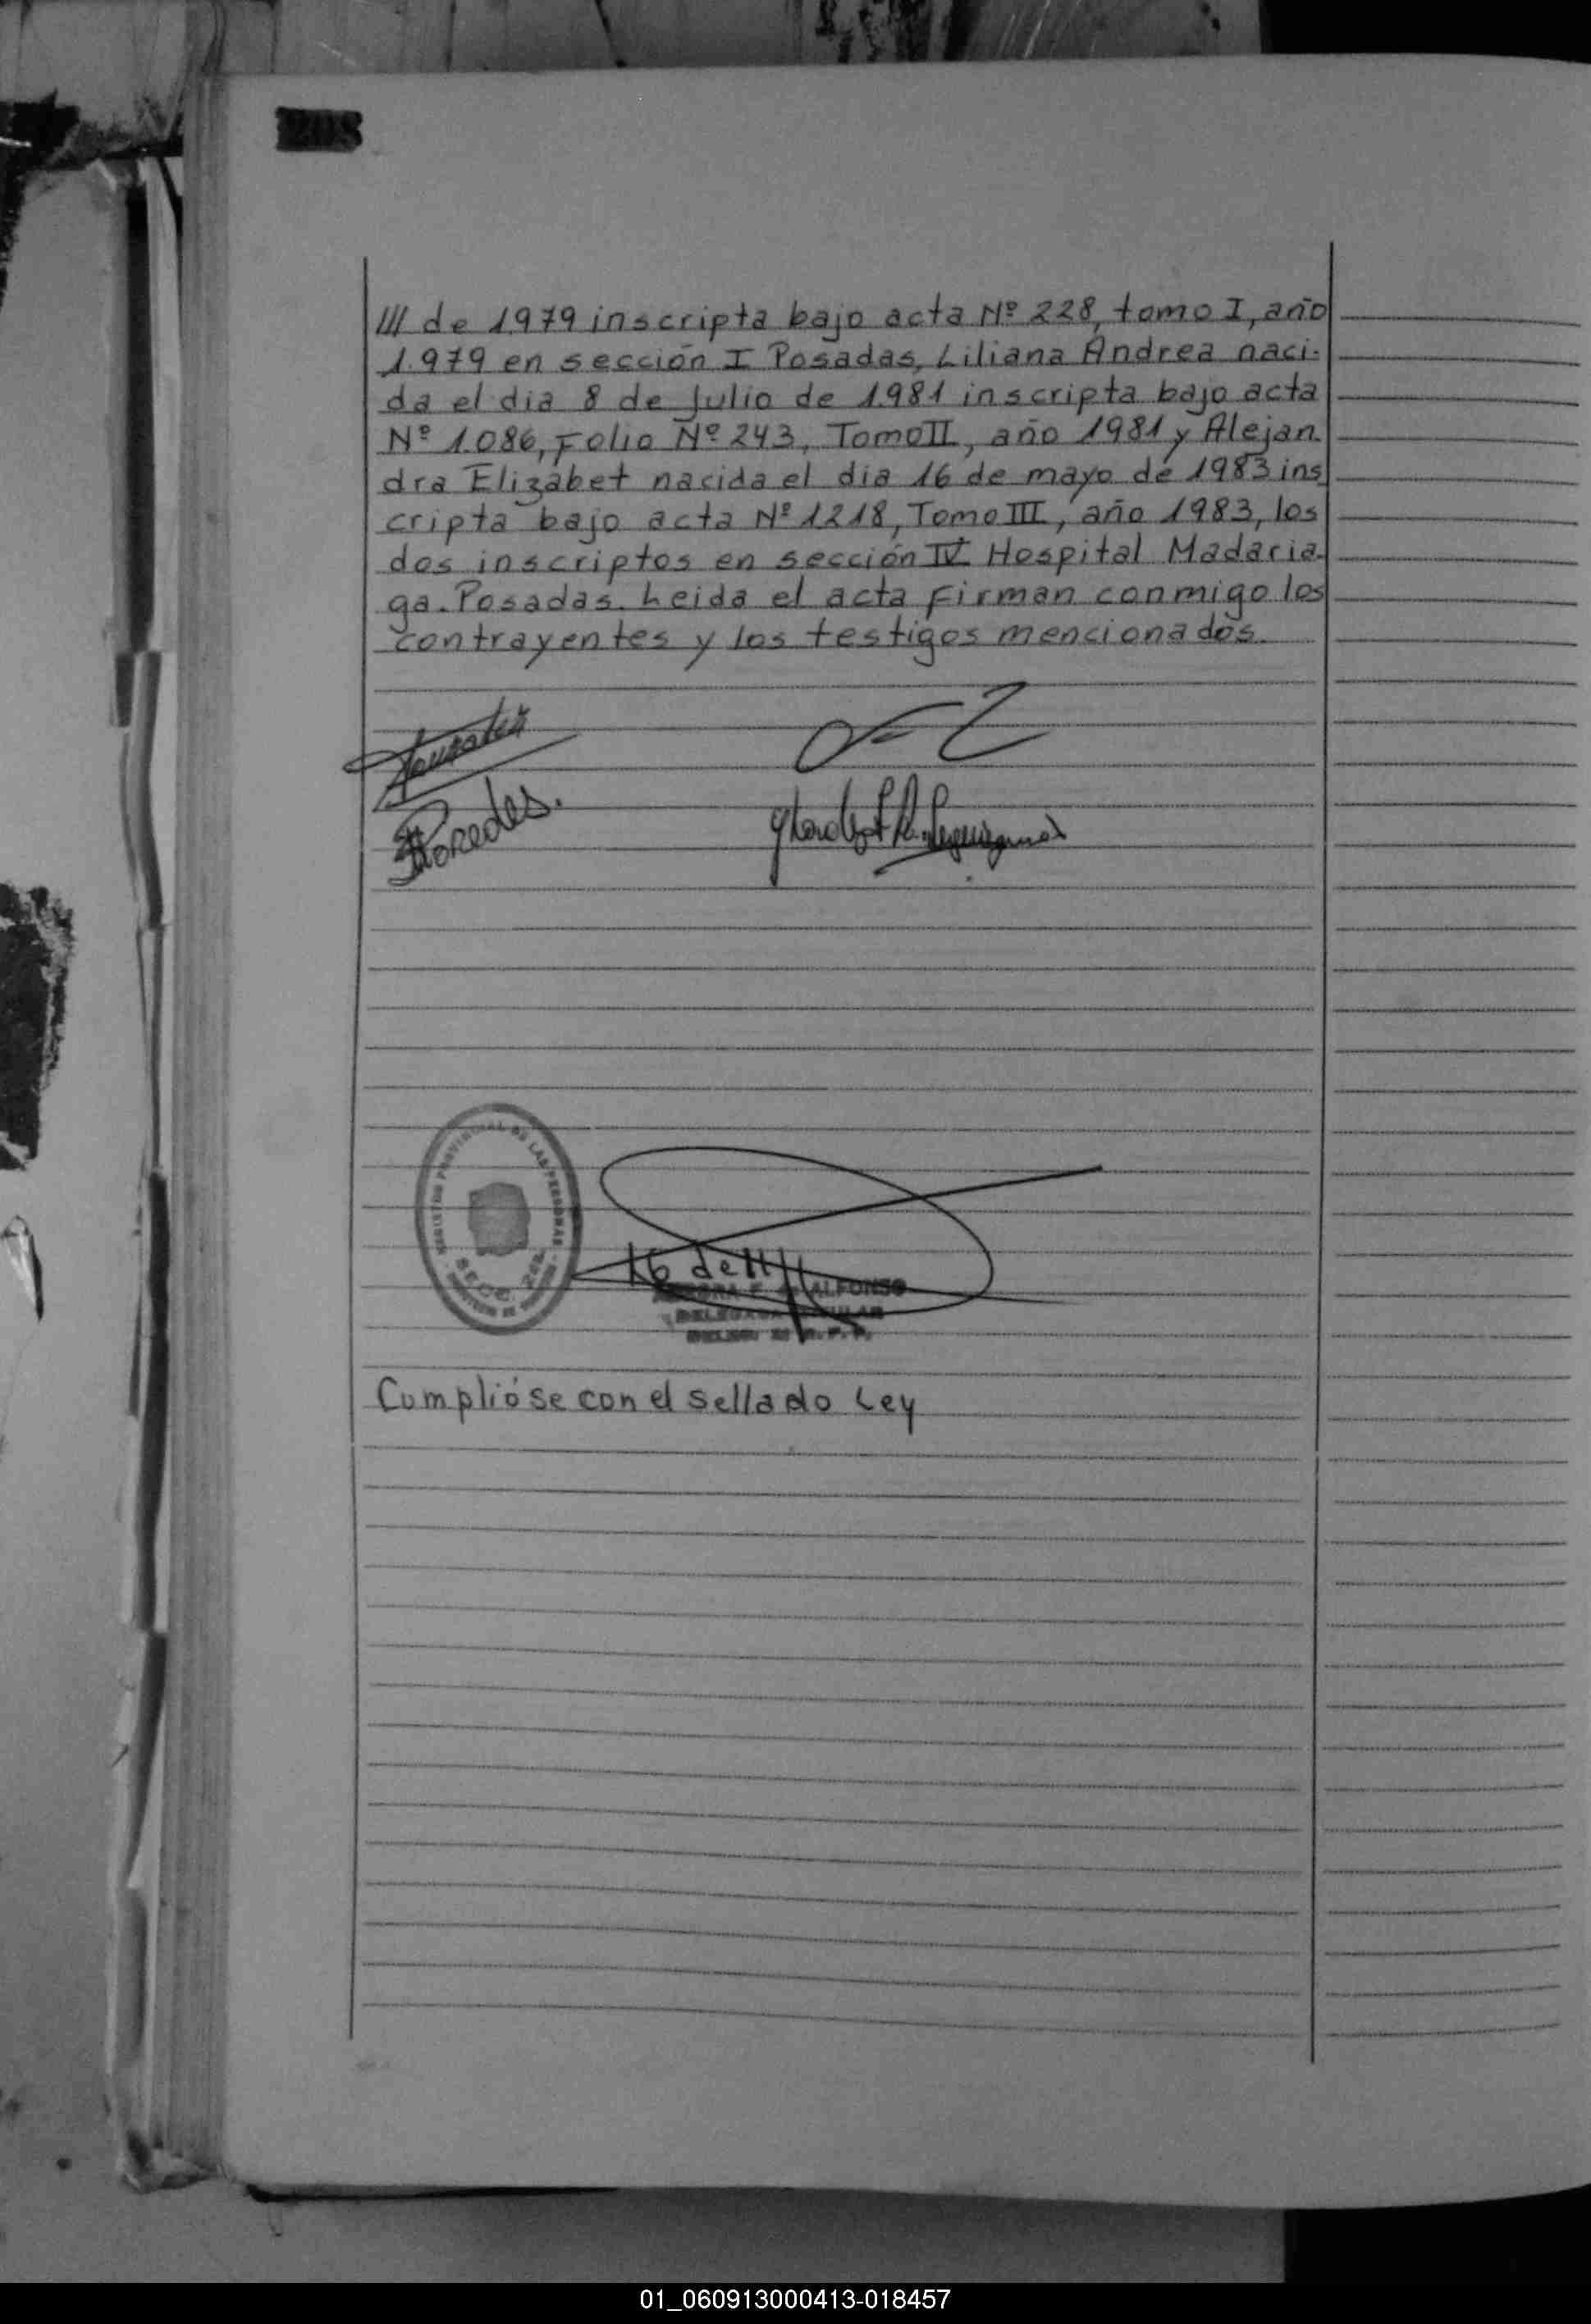 208
/// de 1.979 inscripta bajo acta Nº 228, tomo I, año
1.979 en sección I Posadas, Liliana Andrea naci-
da el dia 8 de Julio de 1.981 inscripta bajo acta
Nº 1.086, Folio Nº 243, Tomo II, año 1981 y Alejan
dra Elizabet nacida el dia 16 de mayo de 1983 ins
cripta bajo acta Nº 1218, Tomo III, año 1983, los
dos inscriptos en sección IV Hospital Madaria-
ga. Posadas. Leida el acta firman conmigo los
contrayentes y los testigos mencionados.
Paredes.
REGISTRO PROVINCIAL DE LAS PERSONAS
ALFONSO
Cumplióse con el sellado Ley
01_060913000413-018457